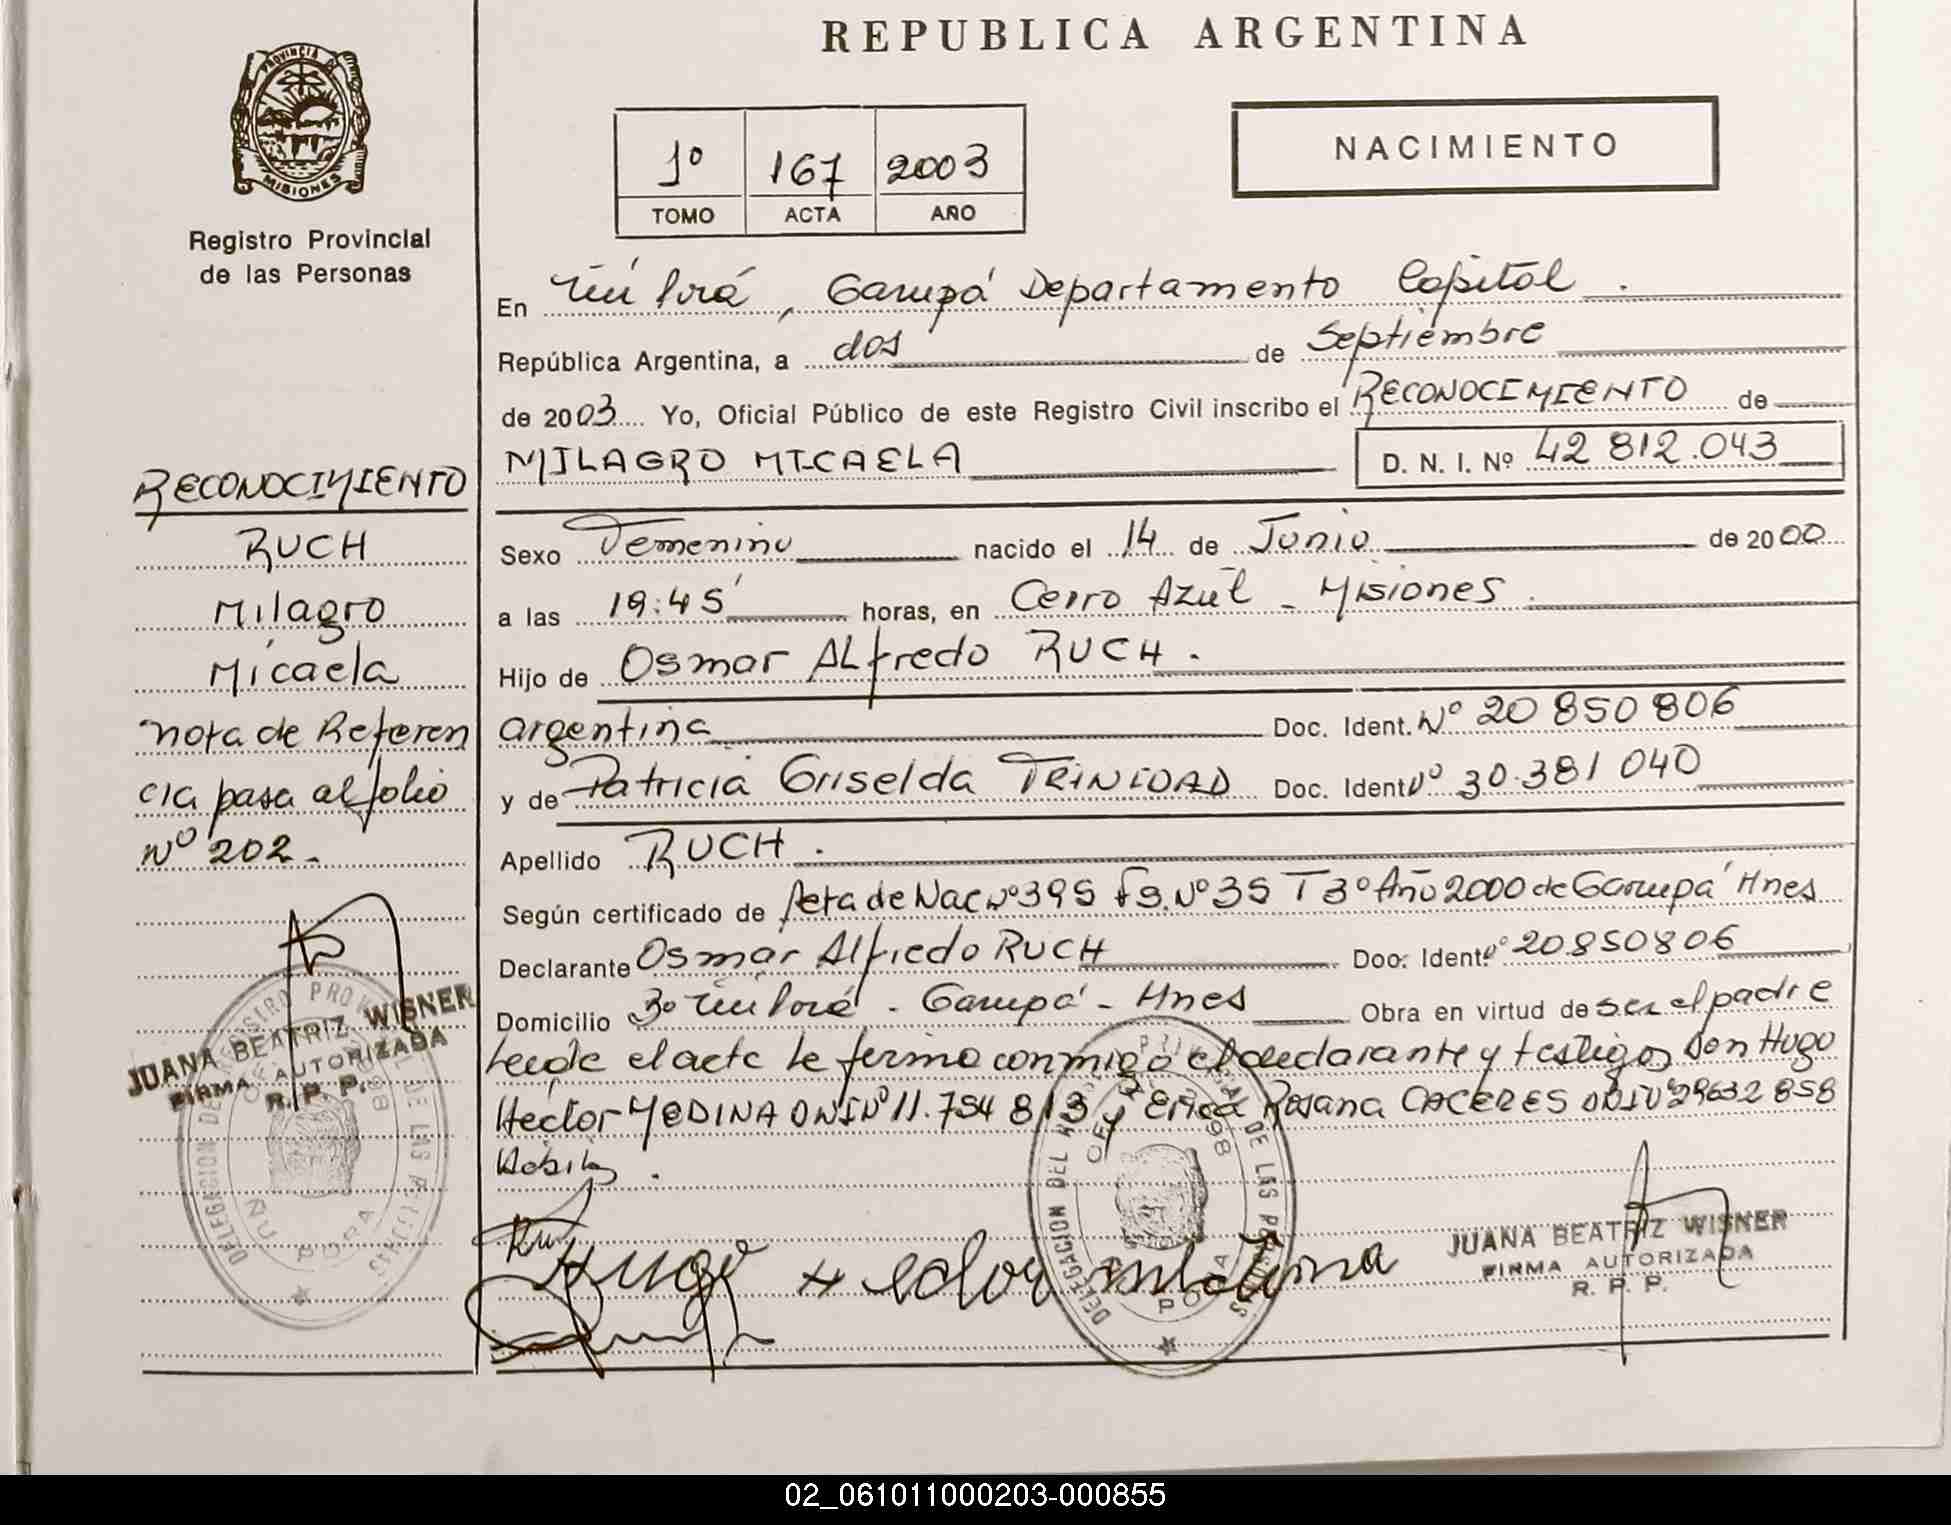 REPUBLICA ARGENTINA
PROVINCIA DE
MISIONES
Registro Provincial
de las Personas
1º 167 2003
TOMO ACTA AÑO
NACIMIENTO
En Ñu Porá, Garupá Departamento Capital.
República Argentina, a dos de Septiembre
de 2003 Yo, Oficial Público de este Registro Civil inscribo el RECONOCIMIENTO de
MILAGRO MICAELA D. N. I. Nº 42 812.043
Sexo Femenino nacido el 14 de Junio de 2000
a las 19:45 horas, en Cerro Azul - Misiones.
Hijo de Osmar ALfredo RUCH.
argentina Doc. Ident. Nº 20 850 806
y de Patricia Griselda TRINIDAD Doc. Ident Nº 30.381 040
Apellido RUCH.
Según certificado de Acta de Nac Nº 395 Fº Nº 35 T 3º Año 2000 de Garupá Mnes
Declarante Osmar Alfredo RUCH Doc. Ident. Nº 20850806
Domicilio Bº Ñu Porá - Garupá - Mnes Obra en virtud de ser el padre
Leida el acta la firma conmigo el declarante y testigos Don Hugo
Hector MEDINA DNI Nº 11.754 813 y Erica Rosana CACERES DNI Nº 29632 858
Habiles.
Hugo Hector Medina
JUANA BEATRIZ WISNER
FIRMA AUTORIZADA
R. P. P.
RECONOCIMIENTO
RUCH
Milagro
Micaela
nota de Referen
cia pasa al folio
Nº 202.
JUANA BEATRIZ WISNER
FIRMA AUTORIZADA
R. P. P.
02_061011000203-000855